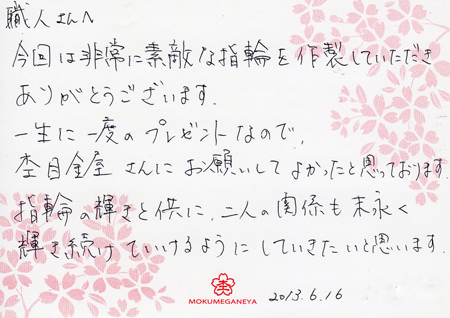 職人さんへ
今回は非常に素敵な指輪を作製していただき
ありがとうございます.
一生に一度のプレゼントなので,
杢目金屋さんにお願いしてよかったと思っております.
指輪の輝きと供に,二人の関係も末永く
輝き続けていけるようにしていきたいと思います.
MOKUMEGANEYA
2013.6.16